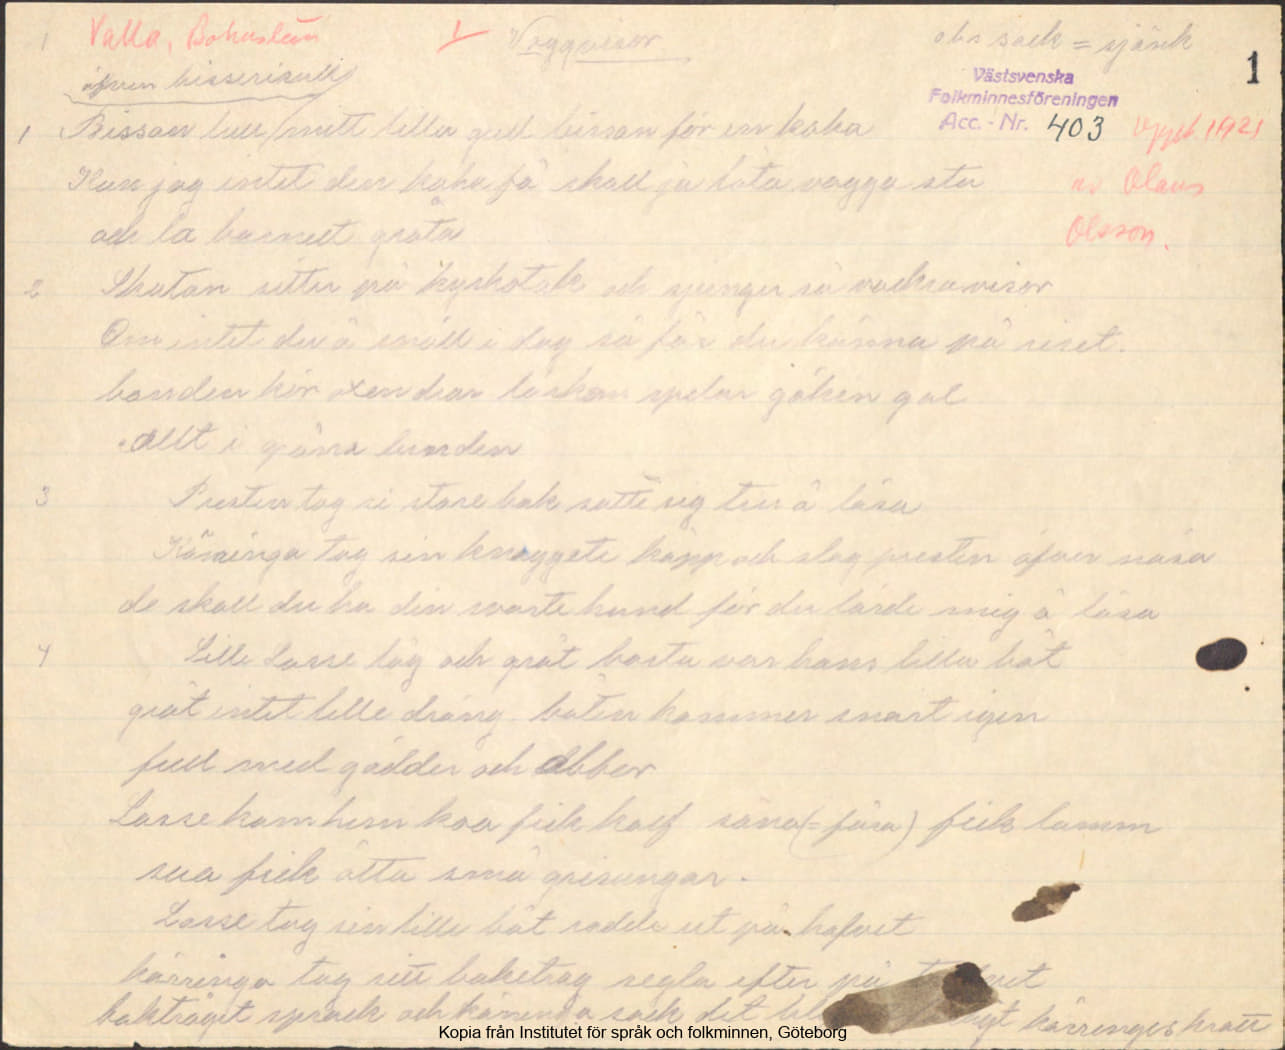 1 Valla, Bohuslän 1 Vaggvisor obs sack = sjönk
1
äfven bisserisull
Västsvenska
Folkminnesföreningen
Acc. - Nr. 403 Uppt. 1921
av Olaus
Olsson.
1 Bissan lull mitt lilla gull bissan för en kaka
Kan jag intet den kaka få skall ja låta vagga stå
och la barnet gråta
2 Skatan sitter på kyrkotak och sjunger så vackra visor
Om intet du ä snäll i dag så får du känna på riset.
bonden kör oxen drar lärkan spelar göken gal
Allt i gröna lunden
3 Presten tog si store bok satte sig ten å läsa
Käringa tog sin knaggete käpp och slog presten öfver näsa
de skall du ha din svarte hund för du lärde mig å läsa
4 Lille Lasse låg och gråt borta var hans lilla båt
gråt intet lille dräng båten kommer snart igen
full med gädder och abber
Lasse kom hem koa fick kalf såna (= fåra) fick lamm
sua fick åtta små grisungar.
Lasse tog sin lille båt rodde ut på hafvet
kärringa tog sitt baketrog segla efter på
baktråget sprack och käringa sack det kärringeskratt
Kopia från Institutet för språk och folkminnen, Göteborg